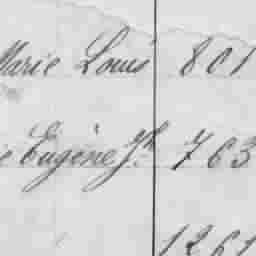 Marie Louis 801
e Eugène Jh 763
1261